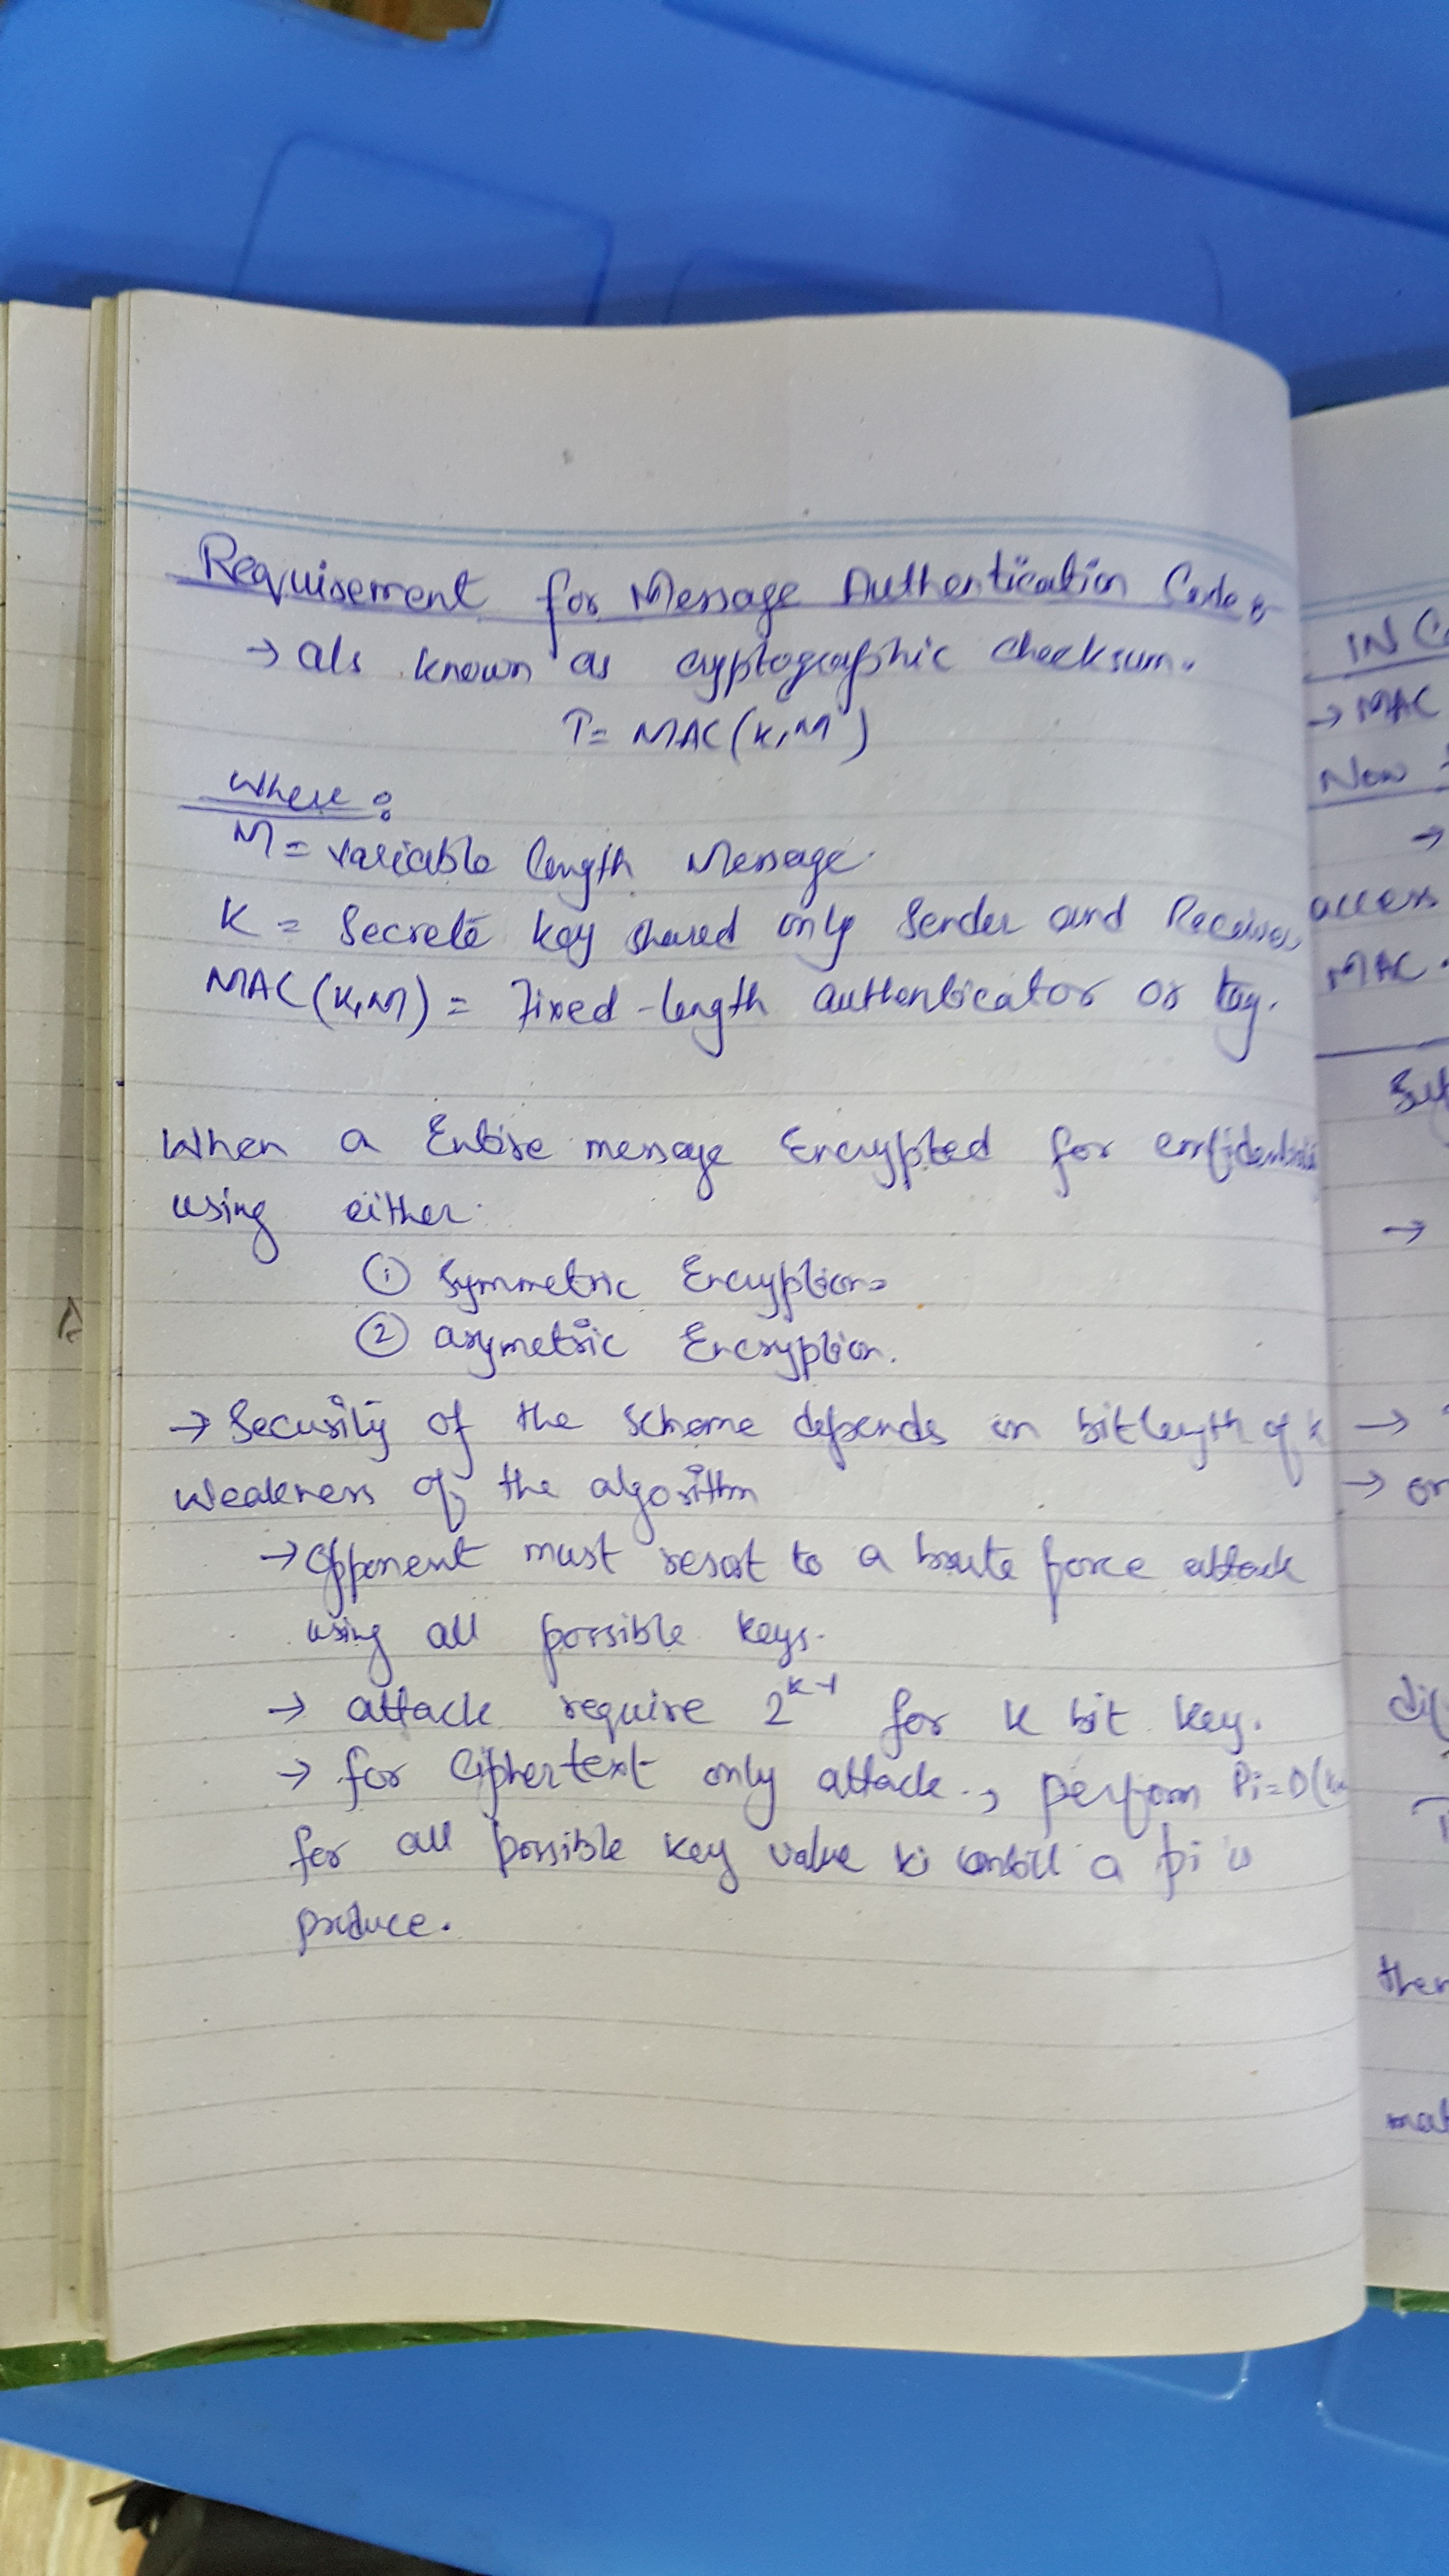 Requirement for Message Authentication Code
→ als known as cryptographic checksum.
T= MAC(K,M)
Where:
M = variable length Message.
K = Secrete key shared only Sender and Receiver
MAC(K,M) = Fixed-length authenticator or tag.
When a Entire message Encrypted for
using either.
① Symmetric Encryption
② asymetric Encryption.
→ Security of the scheme depends on bit length of k
weakness of the algorithm
→ Opponent must resort to a brute force attack
using all possible keys.
→ attack require 2^k-1 for K bit key.
→ for Ciphertext only attack, perform Pi=D(
for all possible key value ki untill a pi is
produce.
IN C
→ MAC
Now
→
access
MAC.
→
→
→ or
ther
mat